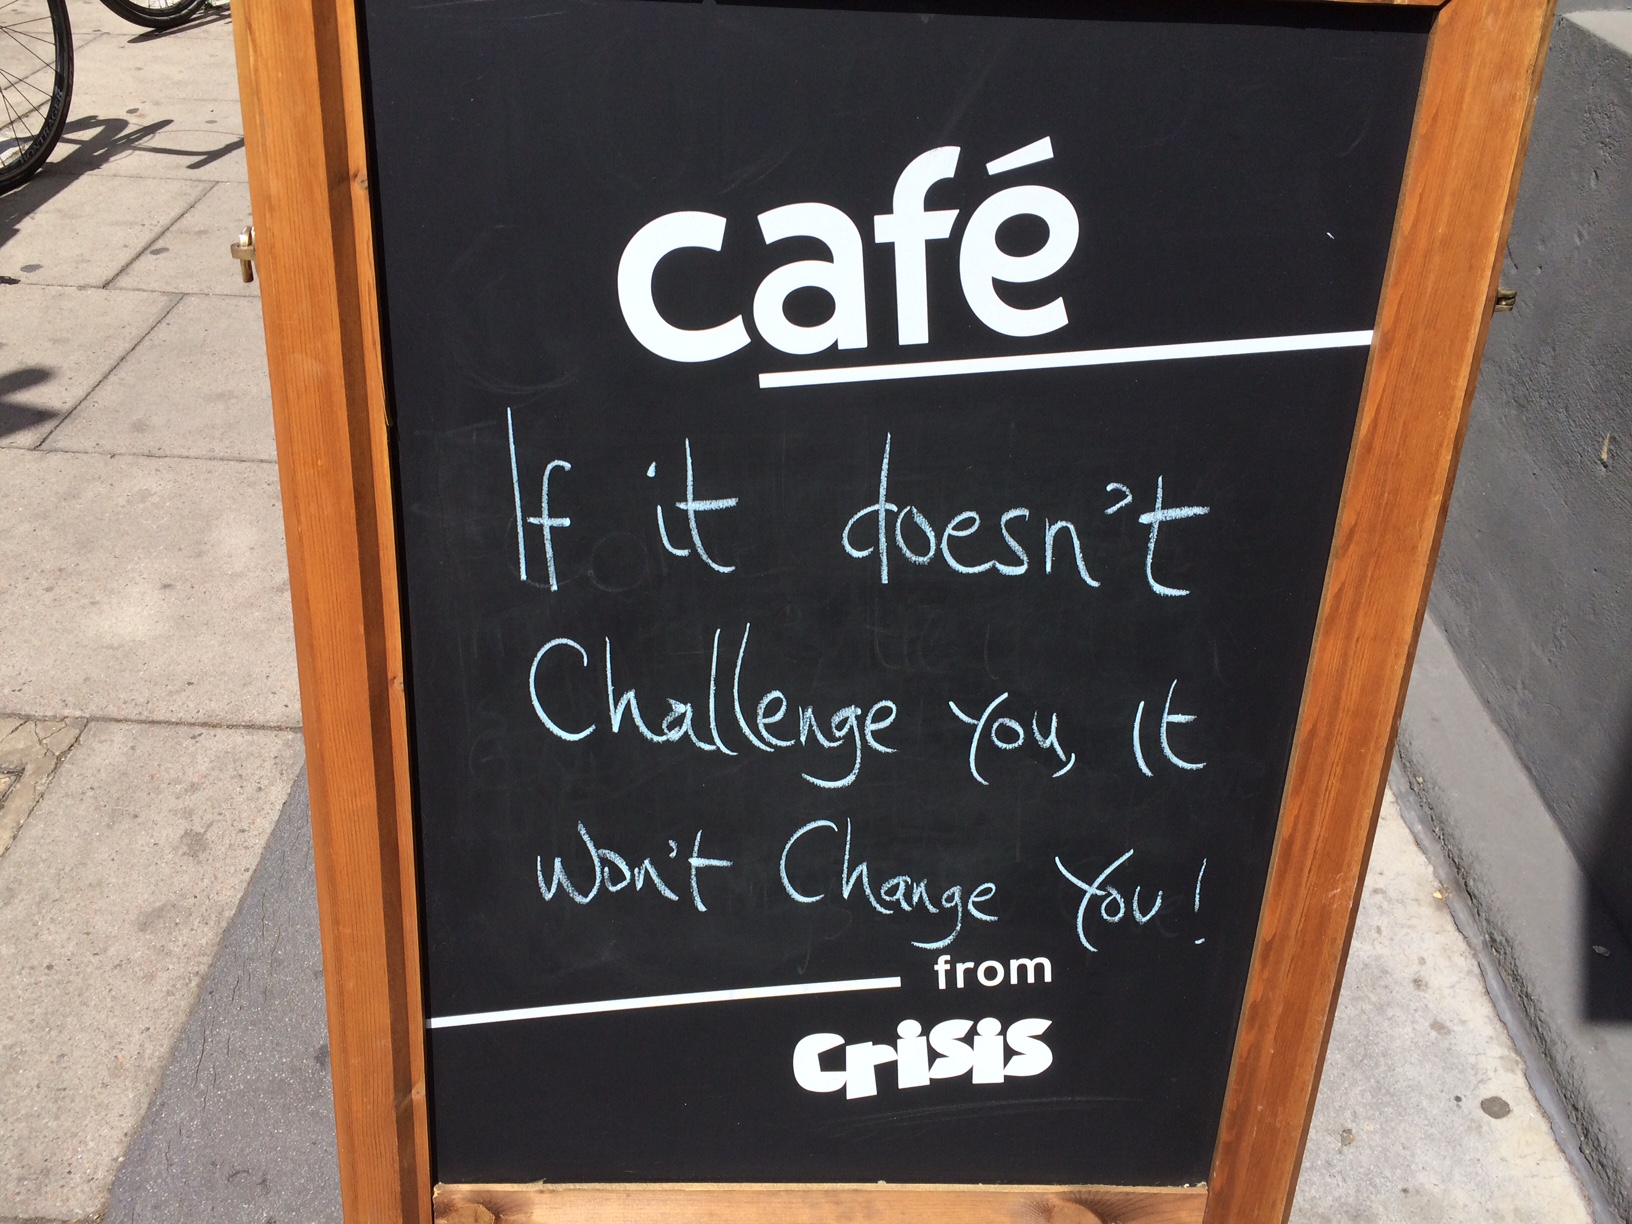 café
If it doesn't
Challenge You, It
Won't Change You!
from
crisis
BONTRAGER